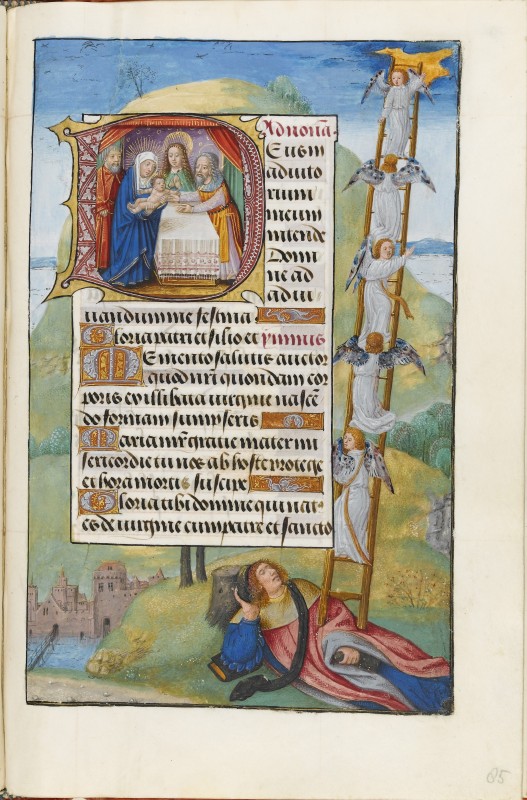 Ad nonã.
Eus in
adiuto
rium
meum
intende
Domi
ne ad
adiu
uandum me festina
Gloria patri et filio et ymnus
Memento salutis auctor
quod nr̃i quondam cor
poris ex illibata uirgine nascẽ
do formam sumpseris
Maria mr̃ gratie mater mi
sericordie tu nos ab hoste protege
et hora mortis suscipe
Gloria tibi domine qui nat⁹
es de uirgine cum patre et sancto
85